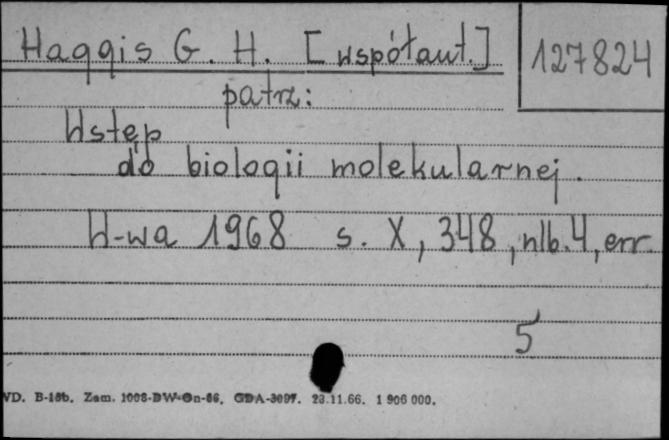 Haggis G. H. [współaut.]
127824
patrz:
Wstęp
do biologii molekularnej.
W-wa 1968 s. X, 348, nlb. 4, err.
5
WD. B-18b. Zam. 1008-DW-Gn-66. GDA-3097. 23.11.66. 1 906 000.